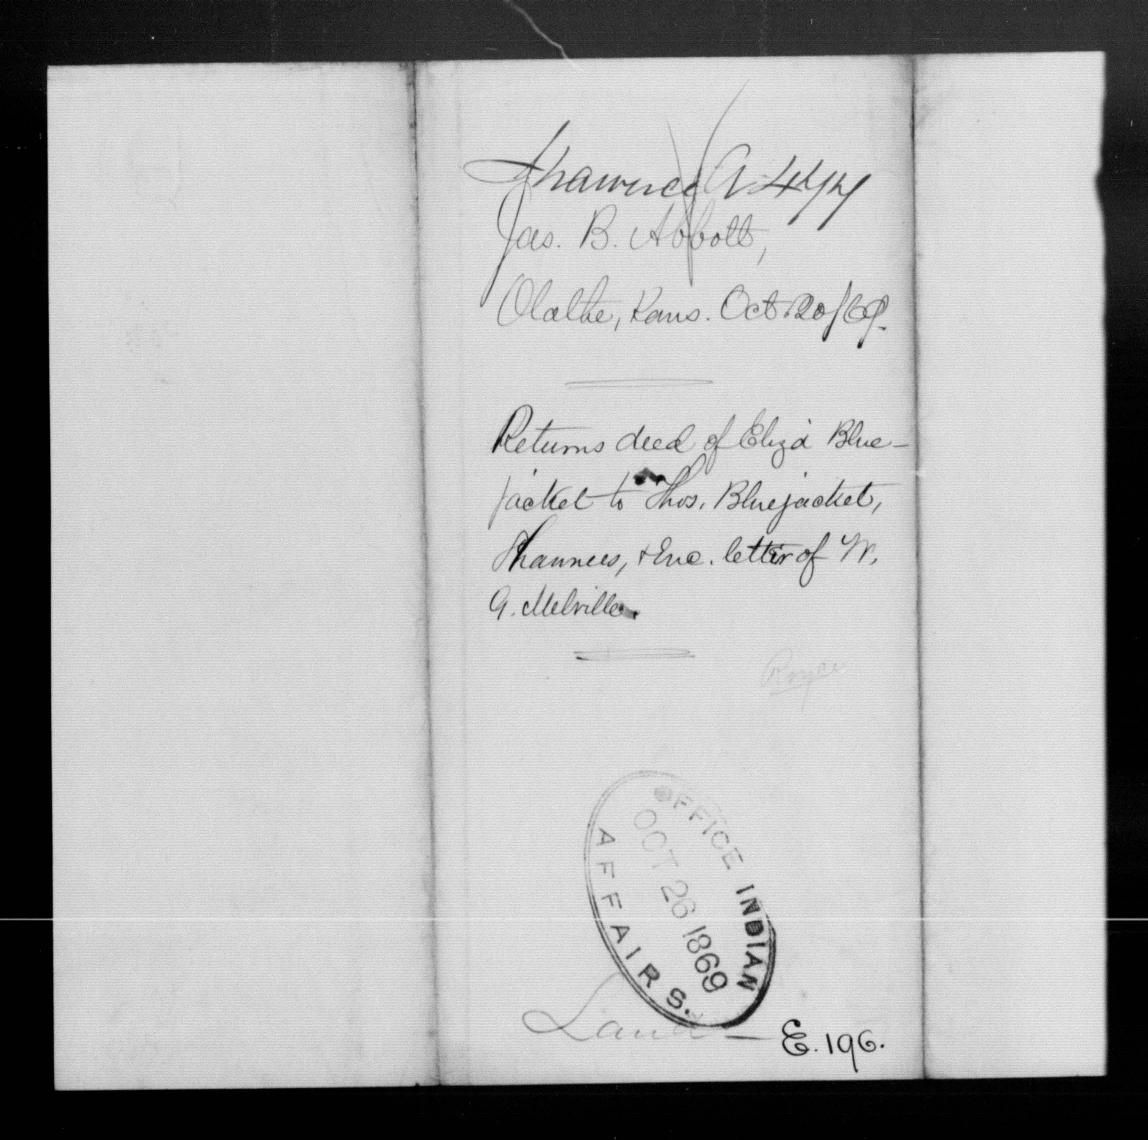 Shawnee A. 477
Jas. B. Abbott,
Olathe, Kans. Oct. 20/69.
Returns deed of Eliza Blue-
jacket to Thos. Bluejacket,
Shawnees, & Enc. letter of W.
G. Melville.
Royce
OFFICE INDIAN
OCT 26 1869
AFFAIRS.
Land —
E. 196.